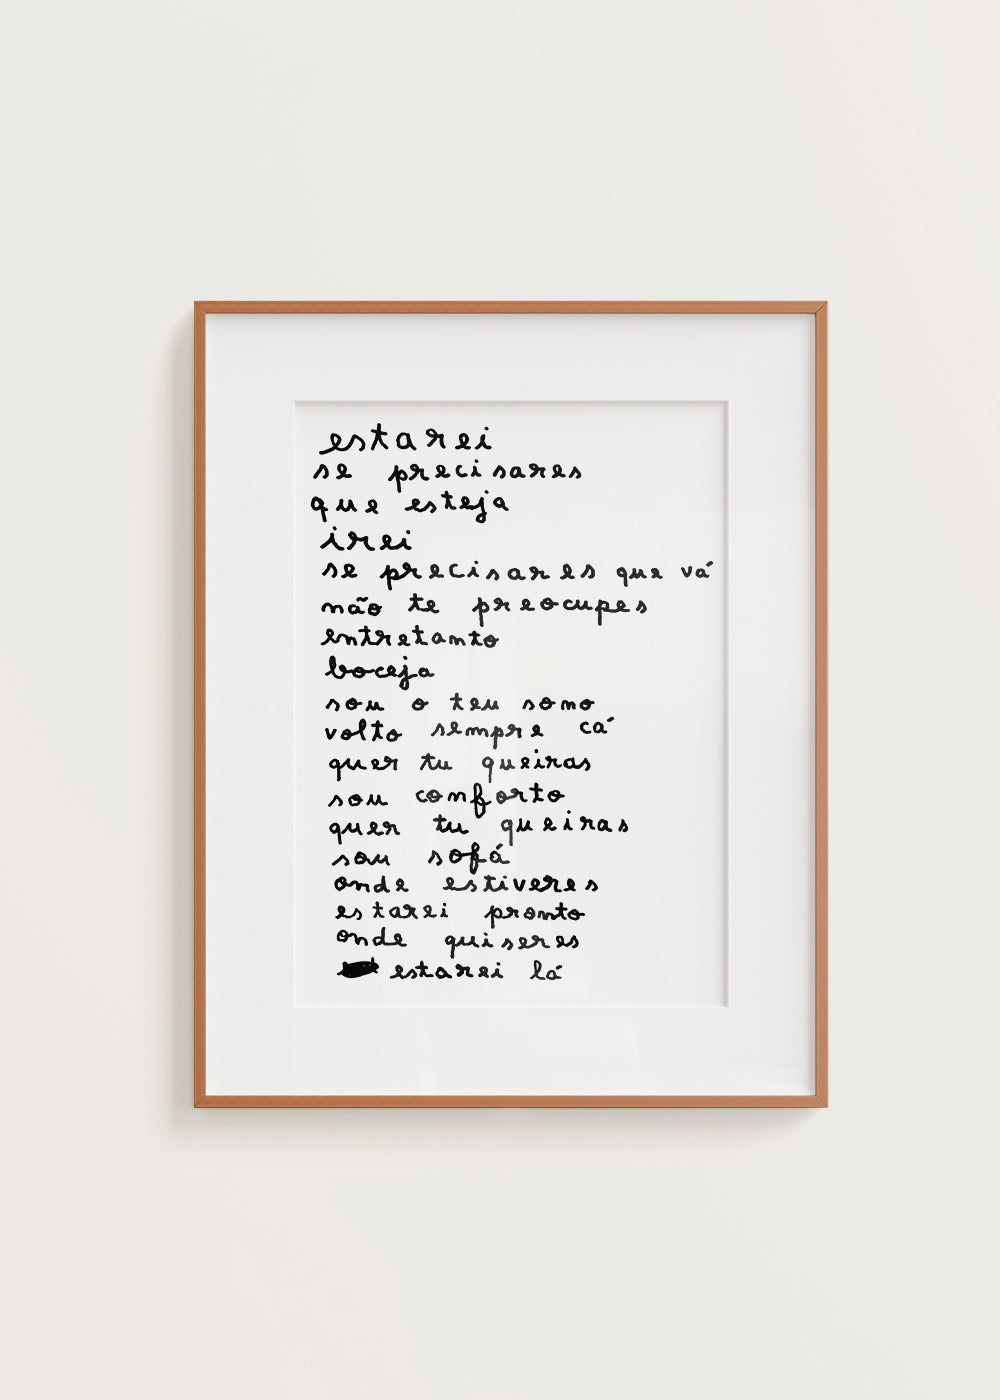 estarei
se precisares
que esteja
irei
se precisares que vá
não te preocupes
entretanto
boceja
sou o teu sono
volto sempre cá
quer tu queiras
sou conforto
quer tu queiras
sou sofá
onde estiveres
estarei pronto
onde quiseres
estarei lá